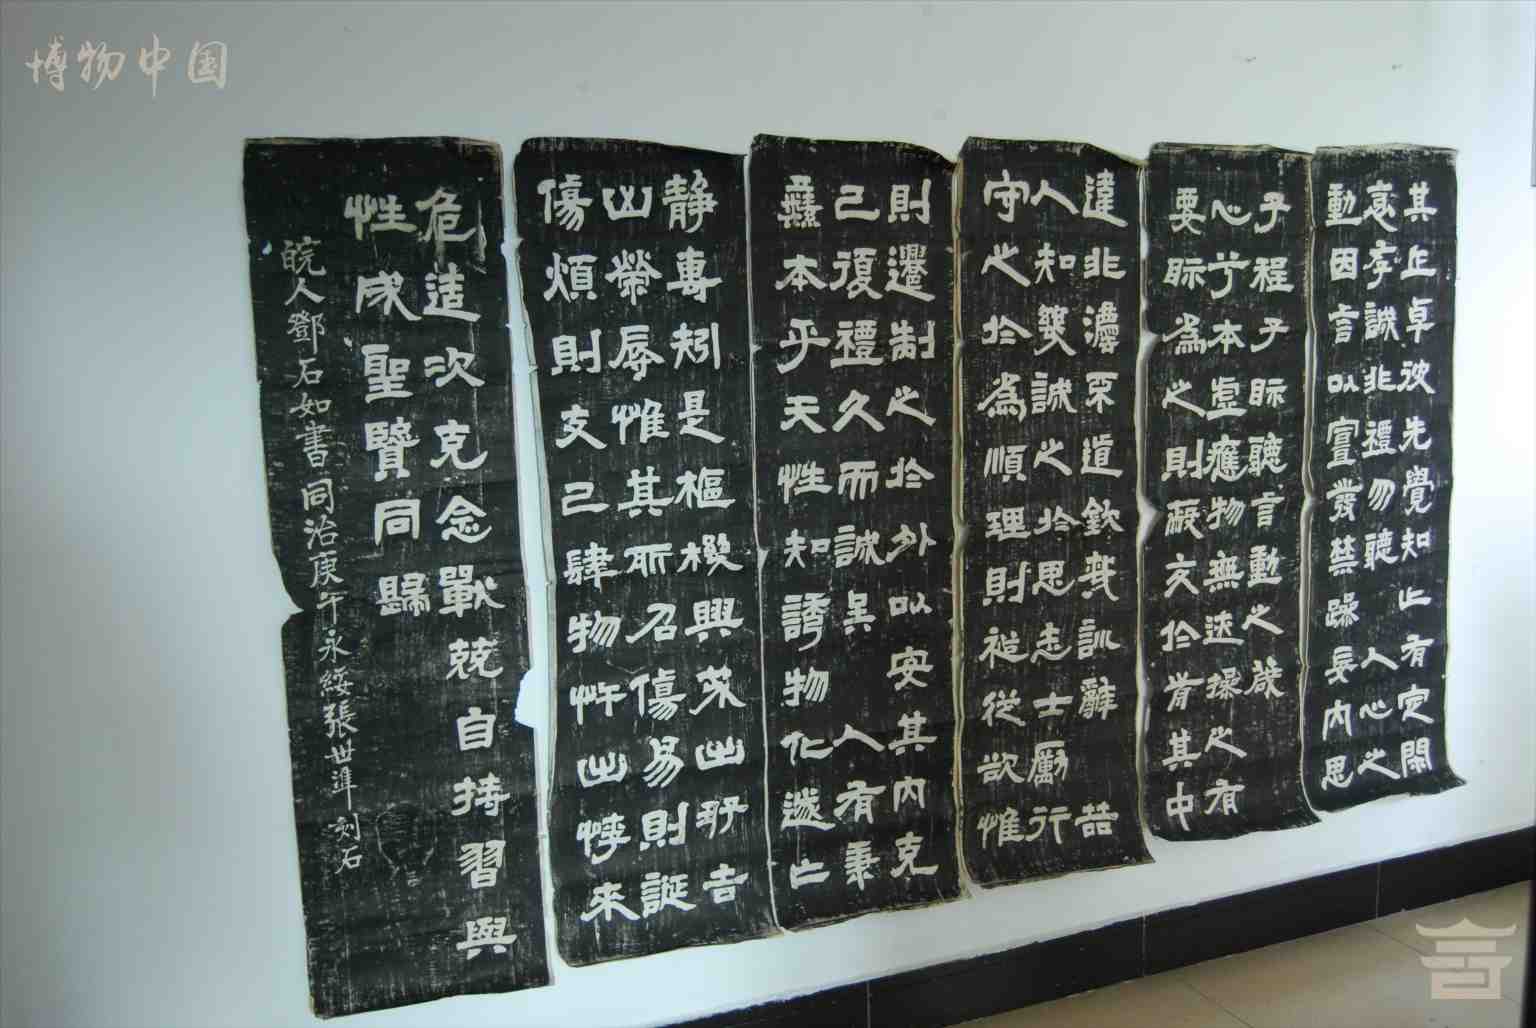 博物中国
其正卓彼先覺知止有定閑
衺存誠非禮勿聽 人心之
動因言以宣發禁躁妄內思
子程子眎聽言動之箴
心兮本虛應物無迹操之有
要眎為之則蔽交於前其中
違非灋不道欽哉訓辭 喆
人知幾誠之於思志士厲行
守之於為順理則裕從欲惟
則遷制之於外以安其內克
己復禮久而誠矣 人有秉
彝本乎天性知誘物化遂亡
靜專矧是樞機興戎出好吉
凶榮辱惟其所召傷易則誕
傷煩則支己肆物忤出悖來
危造次克念戰兢自持習與
性成聖賢同歸
皖人鄧石如書同治庚午永綏張世準刻石